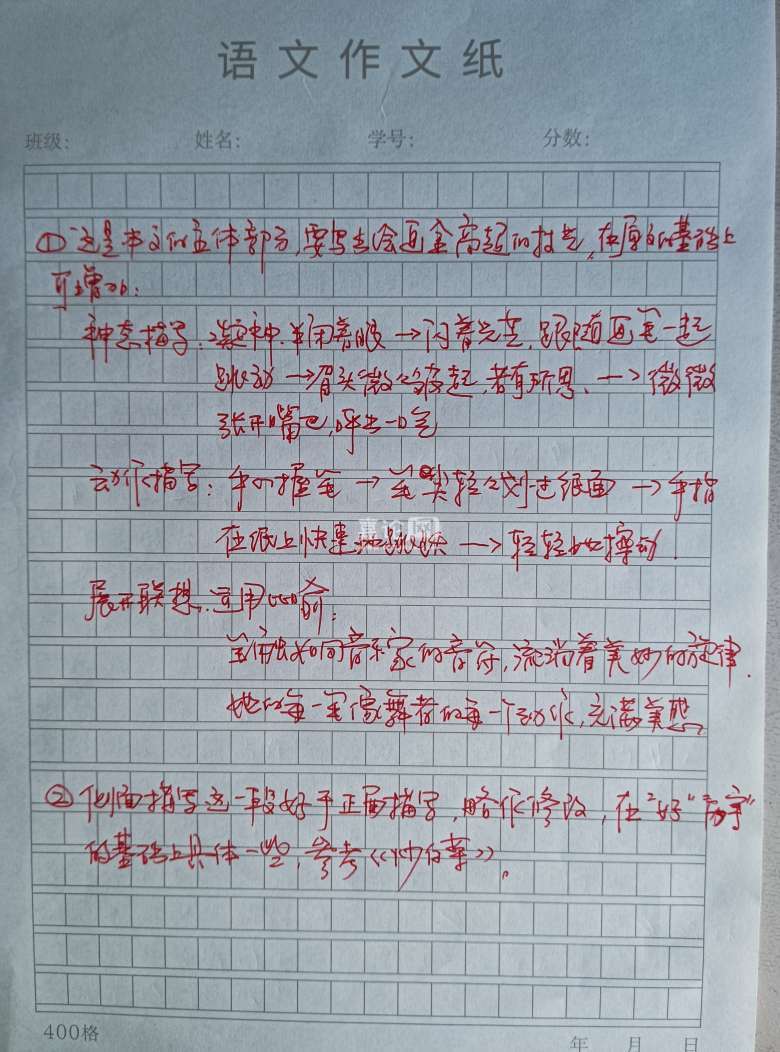 语文作文纸
班级： 姓名： 学号： 分数：
①这是本文的主体部分，要写出绘画金高超的技艺，在原文的基础上
可增加：
神态描写：凝神，半闭着眼→闪着光芒，跟随画笔一起
跳动→眉头微微皱起，若有所思，→微微
张开嘴巴，呼出一口气
动作描写：手握笔→笔尖轻轻划过纸面→手指
在纸上快速地跳跃→轻轻地擦动．
展开联想，运用比喻：
笔触如同音乐家的音符，流淌着美妙的旋律．
她的每一笔像舞者的每一个动作，充满美感
②侧面描写这一段好于正面描写，略作修改，在"好"字
的基础上具体一些，参考《炒白菜》。
惠论网
400格
年 月 日